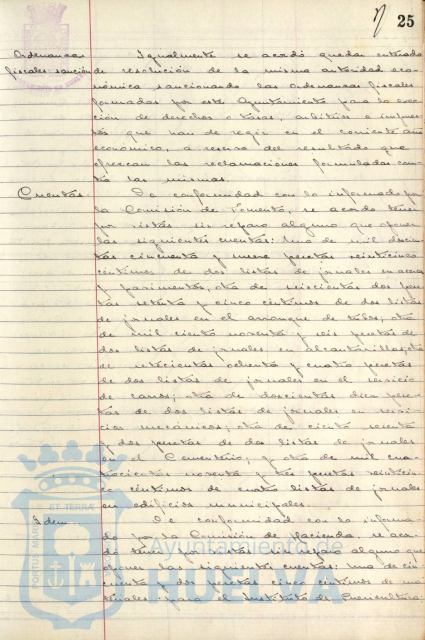 25
Ordenanzas
fiscales sanción
Igualmente se acordó quedar enterado
de resolución de la misma autoridad eco-
nómica sancionando las Ordenanzas fiscales
formadas por este Ayuntamiento para la exac-
ción de derechos o tasas, arbitrios e impues-
tos que han de regir en el corriente año
económico, a reserva del resultado que
ofrezcan las reclamaciones formuladas con-
tra las mismas.
Cuentas
De conformidad con lo informado por
la Comisión de Fomento, se acordó tener
por vistas sin reparo alguno que oponer
las siguientes cuentas: Una de mil doscien-
tas cincuenta y nueve pesetas veinticinco
céntimos de dos listas de jornales en aceras
y pavimentos; otra de seiscientas dos pese-
tas setenta y cinco céntimos de dos listas
de jornales en el arranque de
otra
de mil ciento noventa y seis pesetas de
dos listas de jornales en alcantarillas; otra
de setecientas ochenta y cuatro pesetas
de dos listas de jornales en el servicio
de carros; otra de doscientas diez pese-
tas de dos listas de jornales en servi-
cios mecánicos; otra de ciento sesenta
y dos pesetas de dos listas de jornales
en el Cementerio, y otra de mil cua-
trocientas noventa y tres pesetas veintici-
co céntimos de cuatro listas de jornales
en edificios municipales.
Idem
De conformidad con lo informa-
do por la Comisión de Hacienda, se acor-
dó tener por vistas sin reparo alguno que
oponer las siguientes cuentas: Una de cin-
cuenta y dos pesetas cinco céntimos de ma-
teriales para el Instituto de Puericultura:
PORTUS MARIS ET TERRAE
Ayuntamiento de
HUELVA